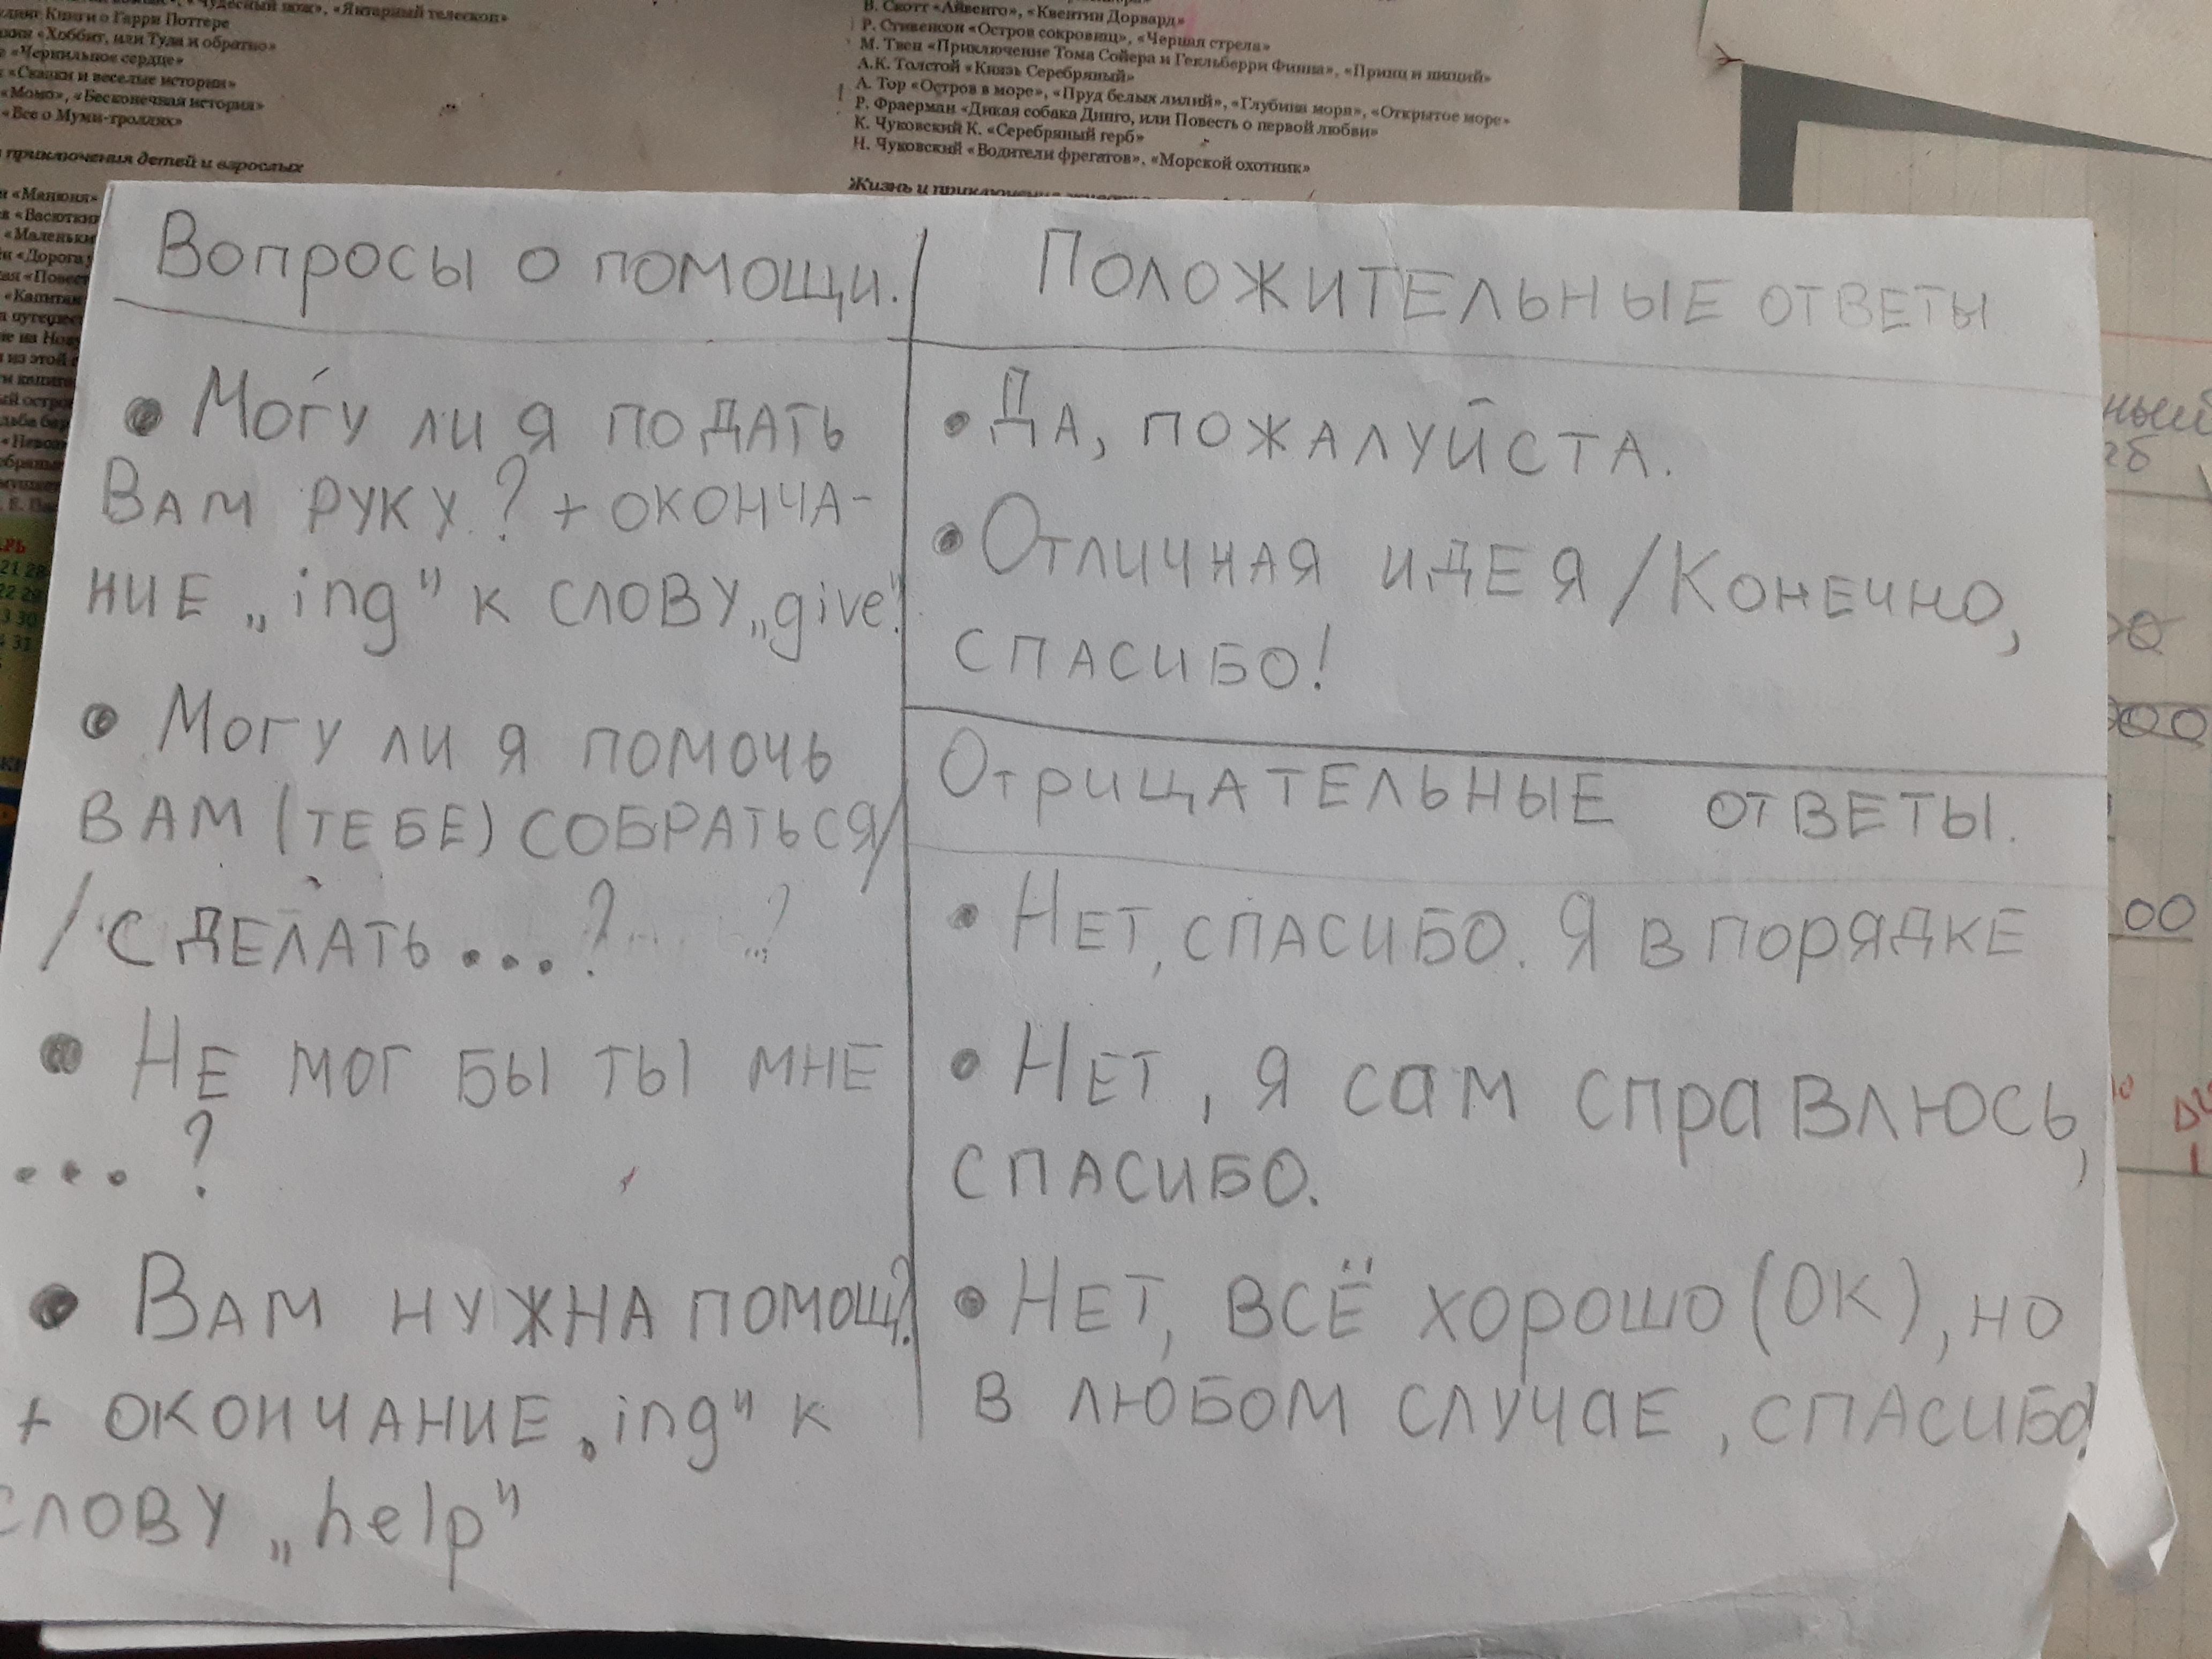 «Янтарный телескоп»
Книги о Гарри Поттере
«Хоббит, или Туда и обратно»
«Чернильное сердце»
«Сказки и веселые истории»
«Момо», «Бесконечная история»
«Все о Муми-троллях»
приключения детей и взрослых
«Манюня»
В. Скотт «Айвенго», «Квентин Дорвард»
Р. Стивенсон «Остров сокровищ», «Черная стрела»
М. Твен «Приключение Тома Сойера и Гекльберри Финна», «Принц и нищий»
А.К. Толстой «Князь Серебряный»
А. Тор «Остров в море», «Пруд белых лилий», «Глубина моря», «Открытое море»
Р. Фраерман «Дикая собака Динго, или Повесть о первой любви»
К. Чуковский К. «Серебряный герб»
Н. Чуковский «Водители фрегатов», «Морской охотник»
Жизнь и приключения
Вопросы о помощи.
• Могу ли я подать
Вам руку? + оконча-
ние „ing" к слову „give".
• Могу ли я помочь
вам (тебе) собраться/
/сделать...?
• Не мог бы ты мне
...?
• Вам нужна помощ?
+ окончание „ing" к
слову „help"
Положительные ответы
• Да, пожалуйста.
• Отличная идея /Конечно,
спасибо!
Отрицательные ответы.
• Нет, спасибо. Я в порядке
• Нет, я сам справлюсь,
спасибо.
• Нет, всё хорошо (ОК), но
в любом случае, спасибо!